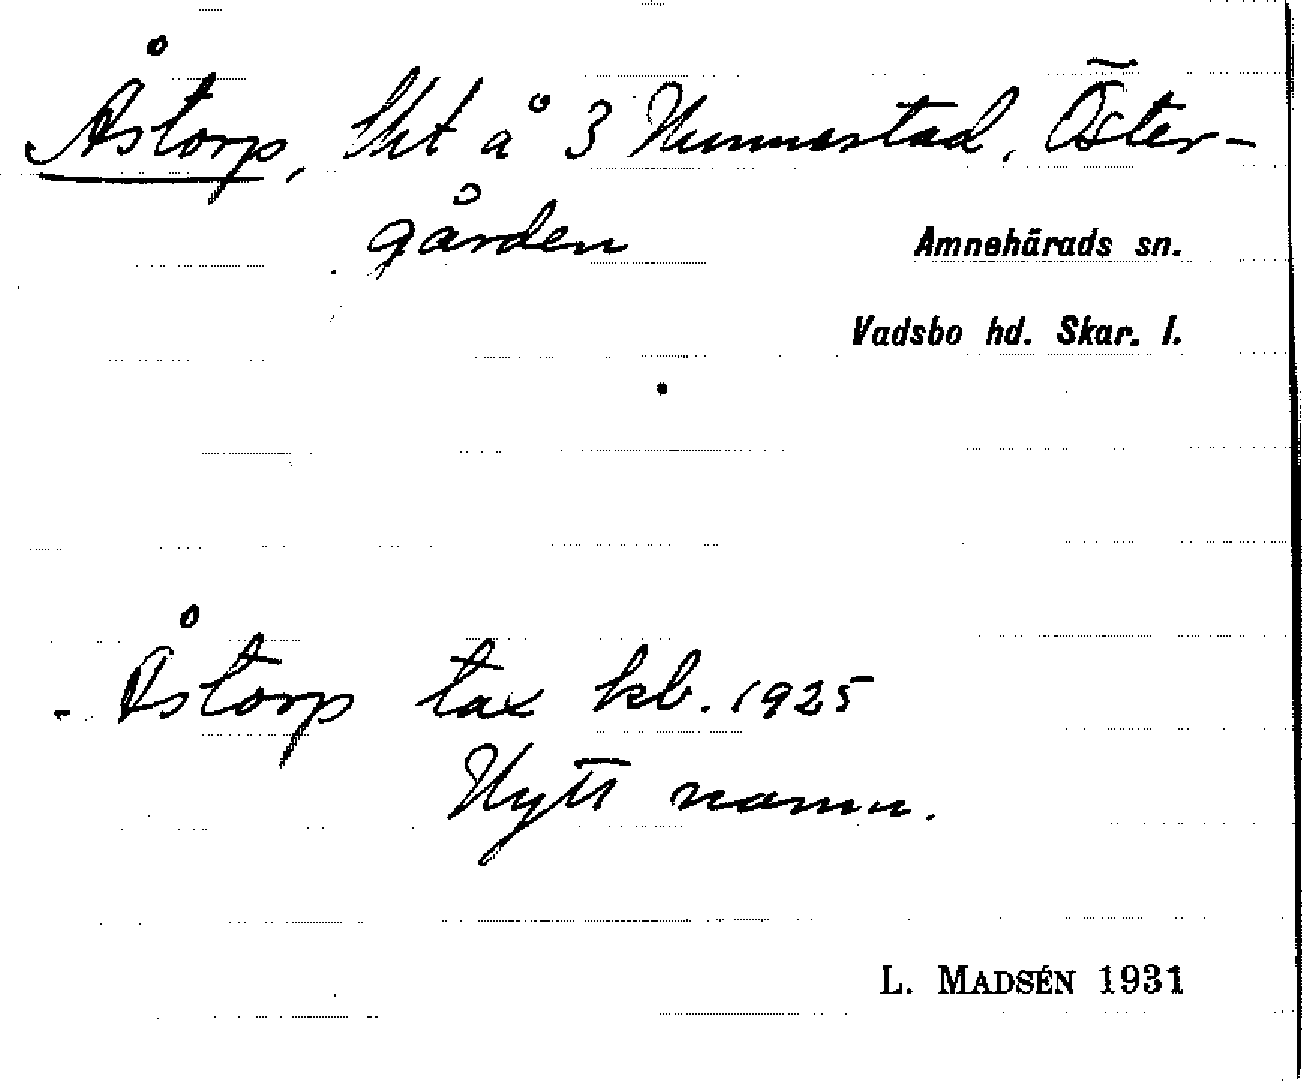 Åstorp, lht å 3 Nunnestad, Öster-
gården
Amnehärads sn.
Vadsbo hd. Skar. l.
Åstorp tax kb. 1925
Nytt namn.
L. MADSÉN 1931